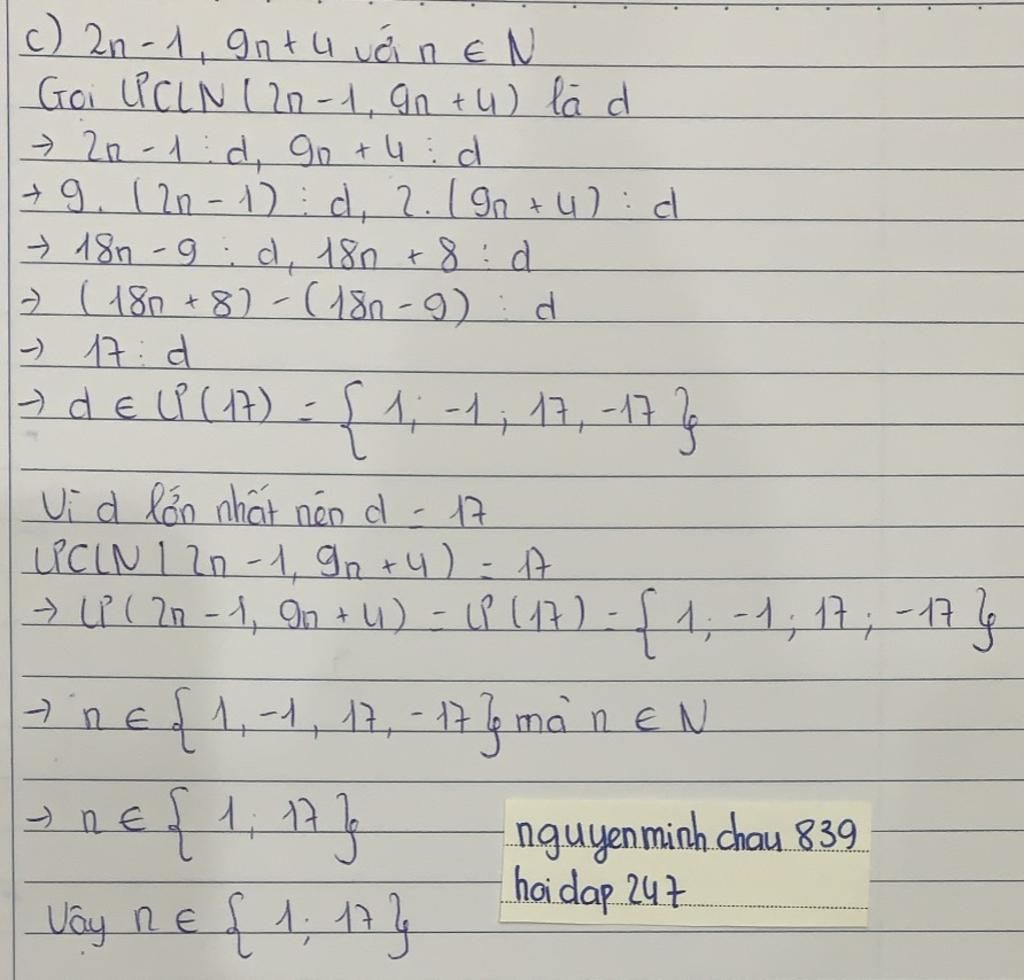 c) 2n - 1, 9n + 4 với n ∈ N
Gọi ƯCLN (2n - 1, 9n + 4) là d
→ 2n - 1 ⋮ d, 9n + 4 ⋮ d
→ 9. (2n - 1) ⋮ d, 2. (9n + 4) ⋮ d
→ 18n - 9 ⋮ d, 18n + 8 ⋮ d
→ (18n + 8) - (18n - 9) ⋮ d
→ 17 ⋮ d
→ d ∈ Ư(17) = { 1; -1; 17, -17 }
Vì d lớn nhất nên d = 17
ƯCLN (2n - 1, 9n + 4) = 17
→ ƯC(2n - 1, 9n + 4) = Ư(17) = { 1; -1; 17; -17 }
→ n ∈ { 1, -1, 17, -17 } mà n ∈ N
→ n ∈ { 1; 17 }
Vậy n ∈ { 1; 17 }
nguyenminh chau 839
hoi dap 247